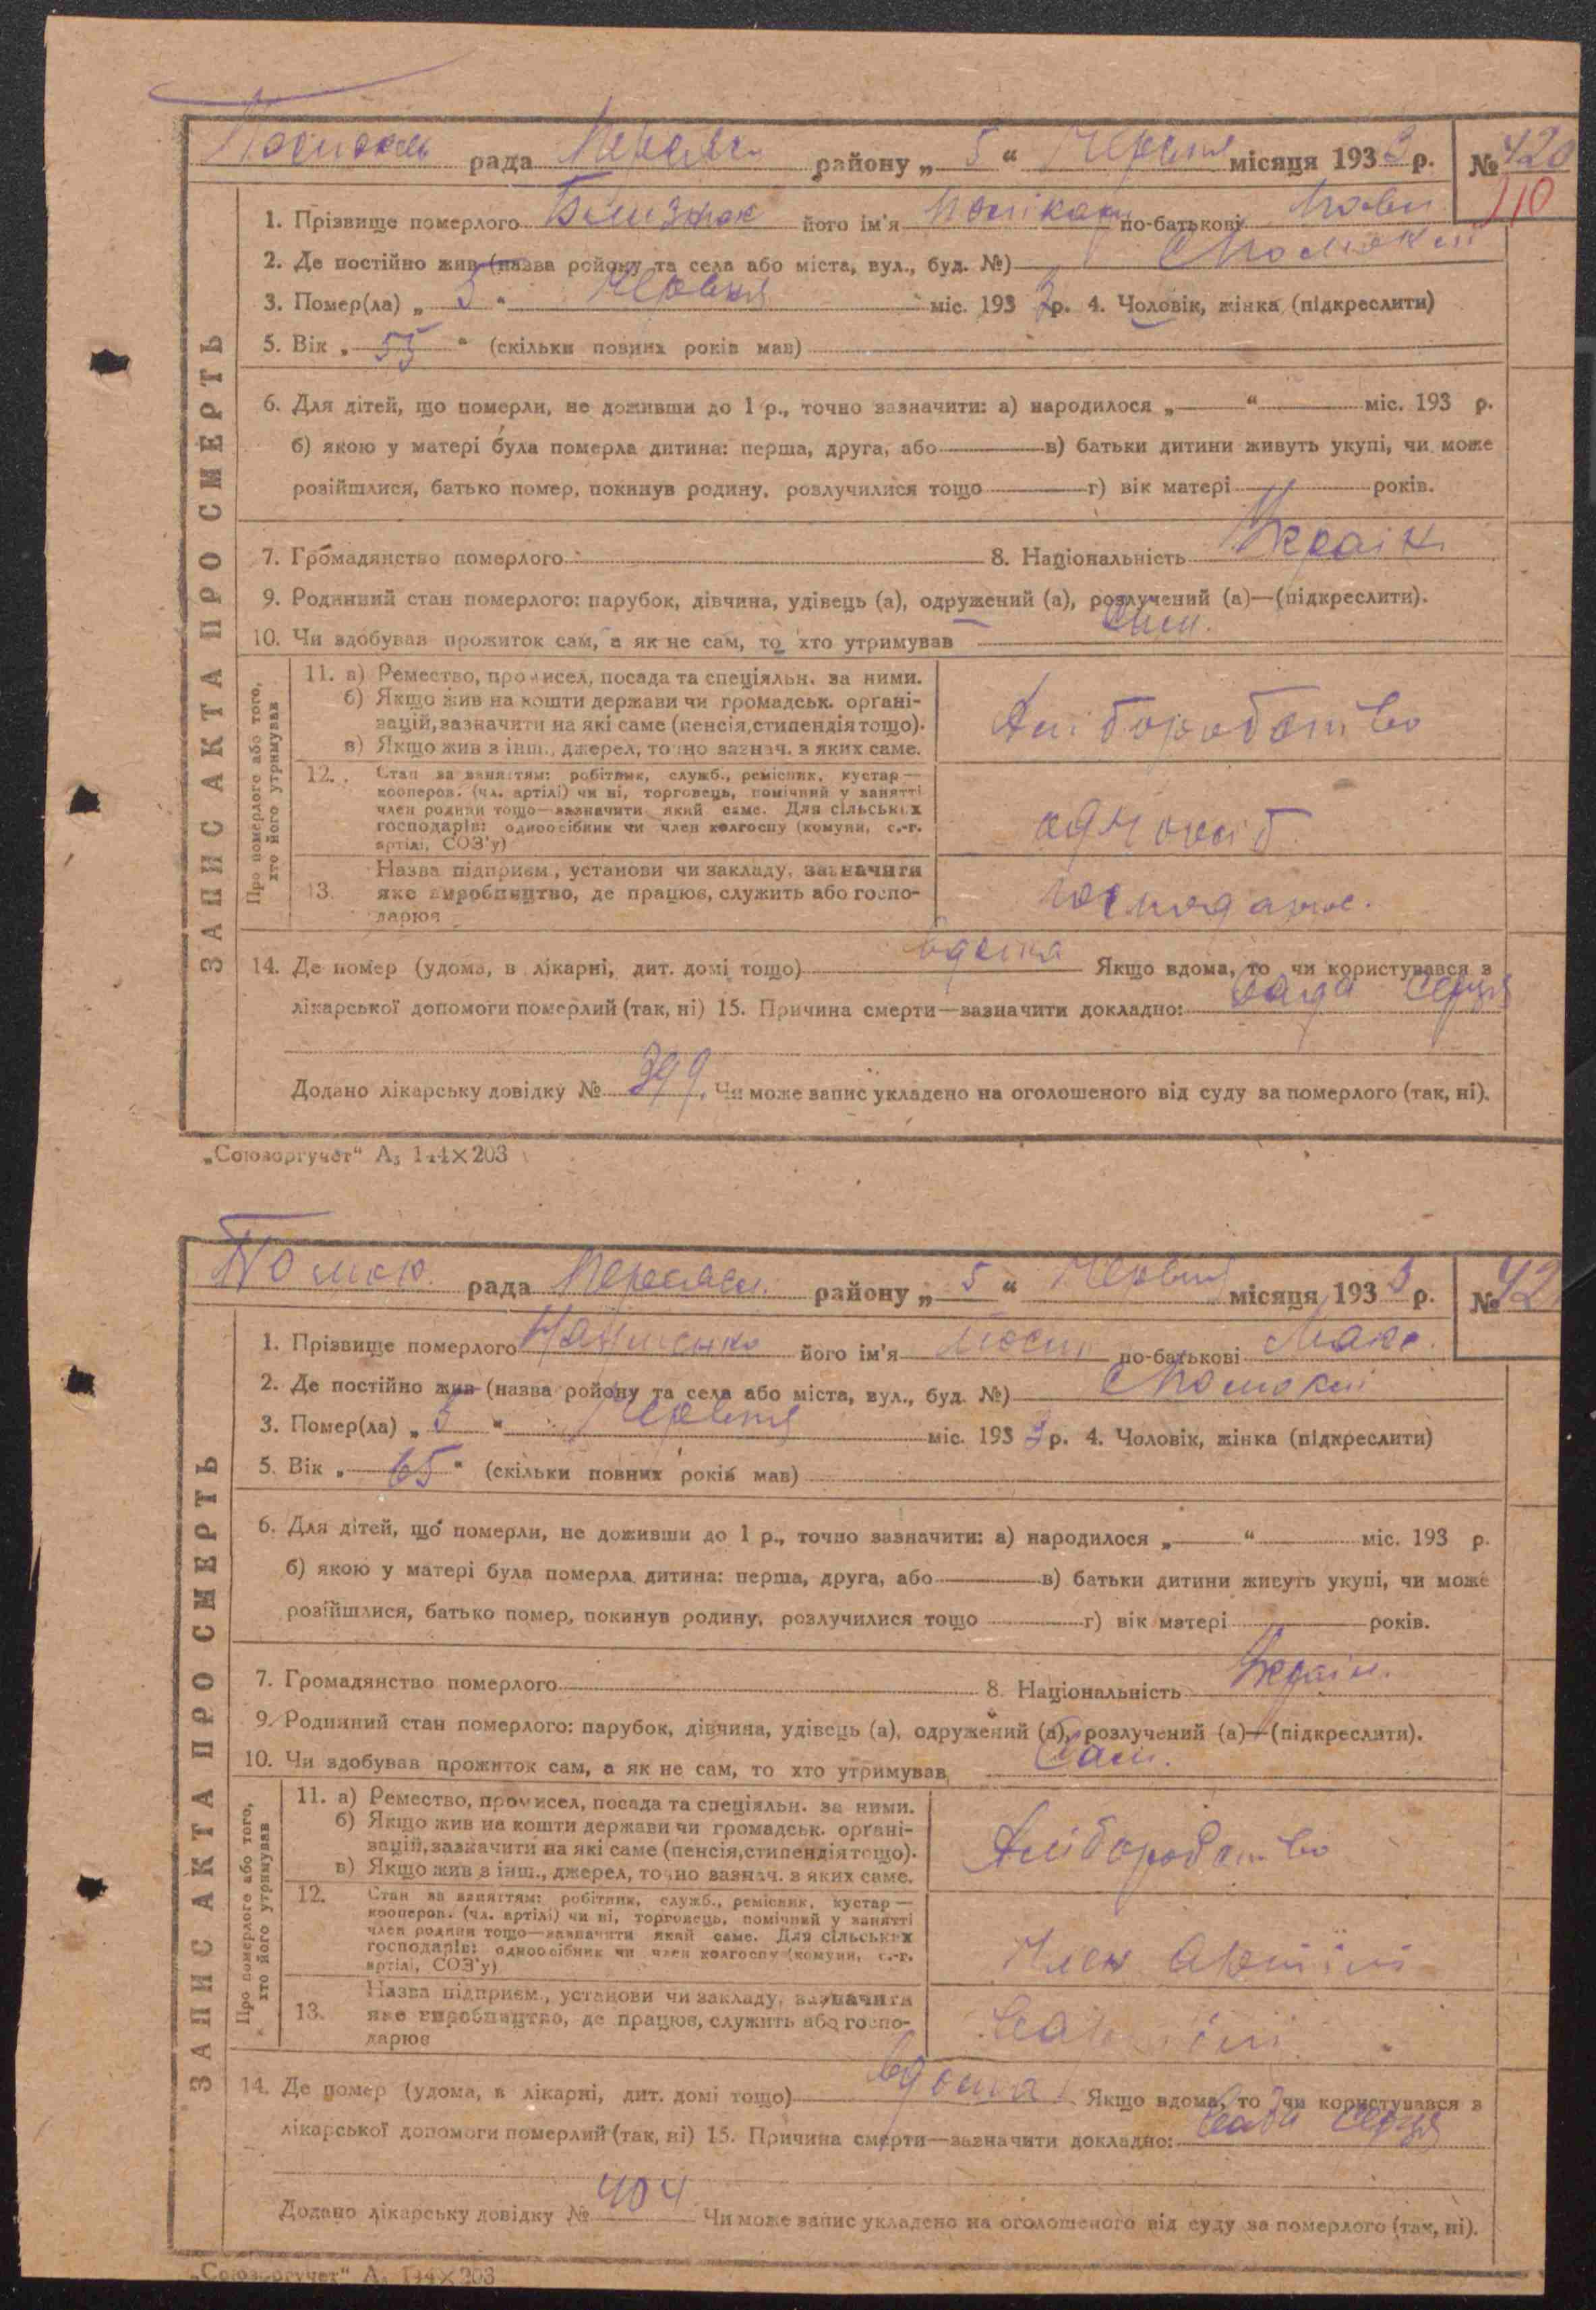 рада Переясл району „ 5 “ Червня місяця 1933 р. № 420
110
1. Прізвище померлого Близнюк його ім'я Полікарп по-батькові
2. Де постійно жив (назва ройону та села або міста, вул., буд. №)
3. Помер(ла) „ 5 “ Червня міс. 1933 р. 4. Чоловік, жінка (підкреслити)
5. Вік „ 55 “ (скільки повних років мав)
6. Для дітей, що померли, не доживши до 1 р., точно зазначити: а) народилося „ “ міс. 193 р.
б) якою у матері була померла дитина: перша, друга, або в) батьки дитини живуть укупі, чи може
розійшлися, батько помер, покинув родину, розлучилися тощо г) вік матері років.
7. Громадянство померлого 8. Національність Україн
9. Родинний стан померлого: парубок, дівчина, удівець (а), одружений (а), розлучений (а)—(підкреслити).
10. Чи здобував прожиток сам, а як не сам, то хто утримував Сам.
ЗАПИС АКТА ПРО СМЕРТЬ
Про померлого або того,
хто його утримував
11. а) Ремество, промисел, посада та спеціяльн. за ними.
б) Якщо жив на кошти держави чи громадськ. орґані-
зацій, зазначити на які саме (пенсія, стипендія тощо).
в) Якщо жив з інш., джерел, точно зазнач. з яких саме.
Хліборобство
12. Стан за заняттям: робітник, служб., ремісник, кустар—
кооперов. (чл. артілі) чи ні, торговець, помічний у занятті
член родини тощо—зазначити який саме. Для сільських
господарів: одноосібник чи член колгоспу (комуни, с.-г.
артілі, СОЗ'у)
одноосіб.
13. Назва підприєм., установи чи закладу, зазначити
яке виробництво, де працює, служить або госпо-
дарює
14. Де помер (удома, в лікарні, дит. домі тощо) вдома Якщо вдома, то чи користувався з
лікарської допомоги померлий (так, ні) 15. Причина смерти—зазначити докладно: вада серця
Додано лікарську довідку № 399. Чи може запис укладено на оголошеного від суду за померлого (так, ні).
„Союзоргучет“ А₅ 144×203
рада Переясл. району „ 5 “ Червня місяця 1933 р. № 42
1. Прізвище померлого його ім'я по-батькові
2. Де постійно жив (назва ройону та села або міста, вул., буд. №) Помоклі
3. Помер(ла) „ 5 “ Червня міс. 1933 р. 4. Чоловік, жінка (підкреслити)
5. Вік „ 65 “ (скільки повних років мав)
6. Для дітей, що померли, не доживши до 1 р., точно зазначити: а) народилося „ “ міс. 193 р.
б) якою у матері була померла дитина: перша, друга, або в) батьки дитини живуть укупі, чи може
розійшлися, батько помер, покинув родину, розлучилися тощо г) вік матері років.
7. Громадянство померлого 8. Національність Україн.
9. Родинний стан померлого: парубок, дівчина, удівець (а), одружений (а), розлучений (а)—(підкреслити).
10. Чи здобував прожиток сам, а як не сам, то хто утримував Сам.
ЗАПИС АКТА ПРО СМЕРТЬ
Про померлого або того,
хто його утримував
11. а) Ремество, промисел, посада та спеціяльн. за ними.
б) Якщо жив на кошти держави чи громадськ. орґані-
зацій, зазначити на які саме (пенсія, стипендія тощо).
в) Якщо жив з інш., джерел, точно зазнач. з яких саме.
Хліборобство
12. Стан за заняттям: робітник, служб., ремісник, кустар—
кооперов. (чл. артілі) чи ні, торговець, помічний у занятті
член родини тощо—зазначити який саме. Для сільських
господарів: одноосібник чи член колгоспу (комуни, с.-г.
артілі, СОЗ'у)
Член артілі
13. Назва підприєм., установи чи закладу, зазначити
яке виробництво, де працює, служить або госпо-
дарює
14. Де помер (удома, в лікарні, дит. домі тощо) вдома Якщо вдома, то чи користувався з
лікарської допомоги померлий (так, ні) 15. Причина смерти—зазначити докладно: вада серця
Додано лікарську довідку № 404 Чи може запис укладено на оголошеного від суду за померлого (так, ні).
„Союзоргучет“ А₅ 144×203